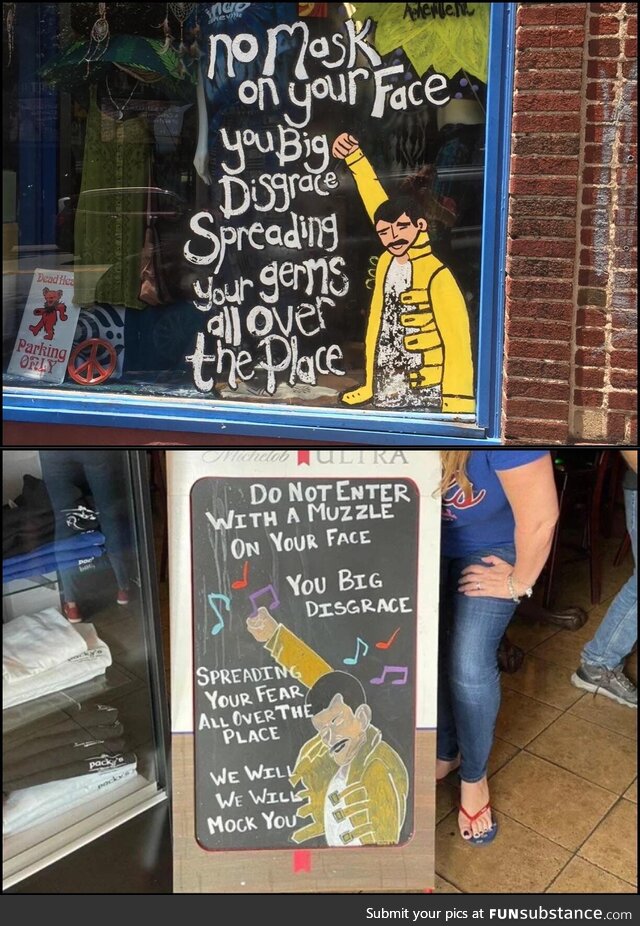 Asheville, NC
no Mask
on your Face
you Big
Disgrace
Spreading
your germs
all over
the Place
Dead Head
Parking
ONLY
Michelob ULTRA
DO NOT ENTER
WITH A MUZZLE
ON YOUR FACE
YOU BIG
DISGRACE
SPREADING
YOUR FEAR
ALL OVER THE
PLACE
WE WILL
WE WILL
MOCK YOU
packy's
packy's
Submit your pics at FUNsubstance.com